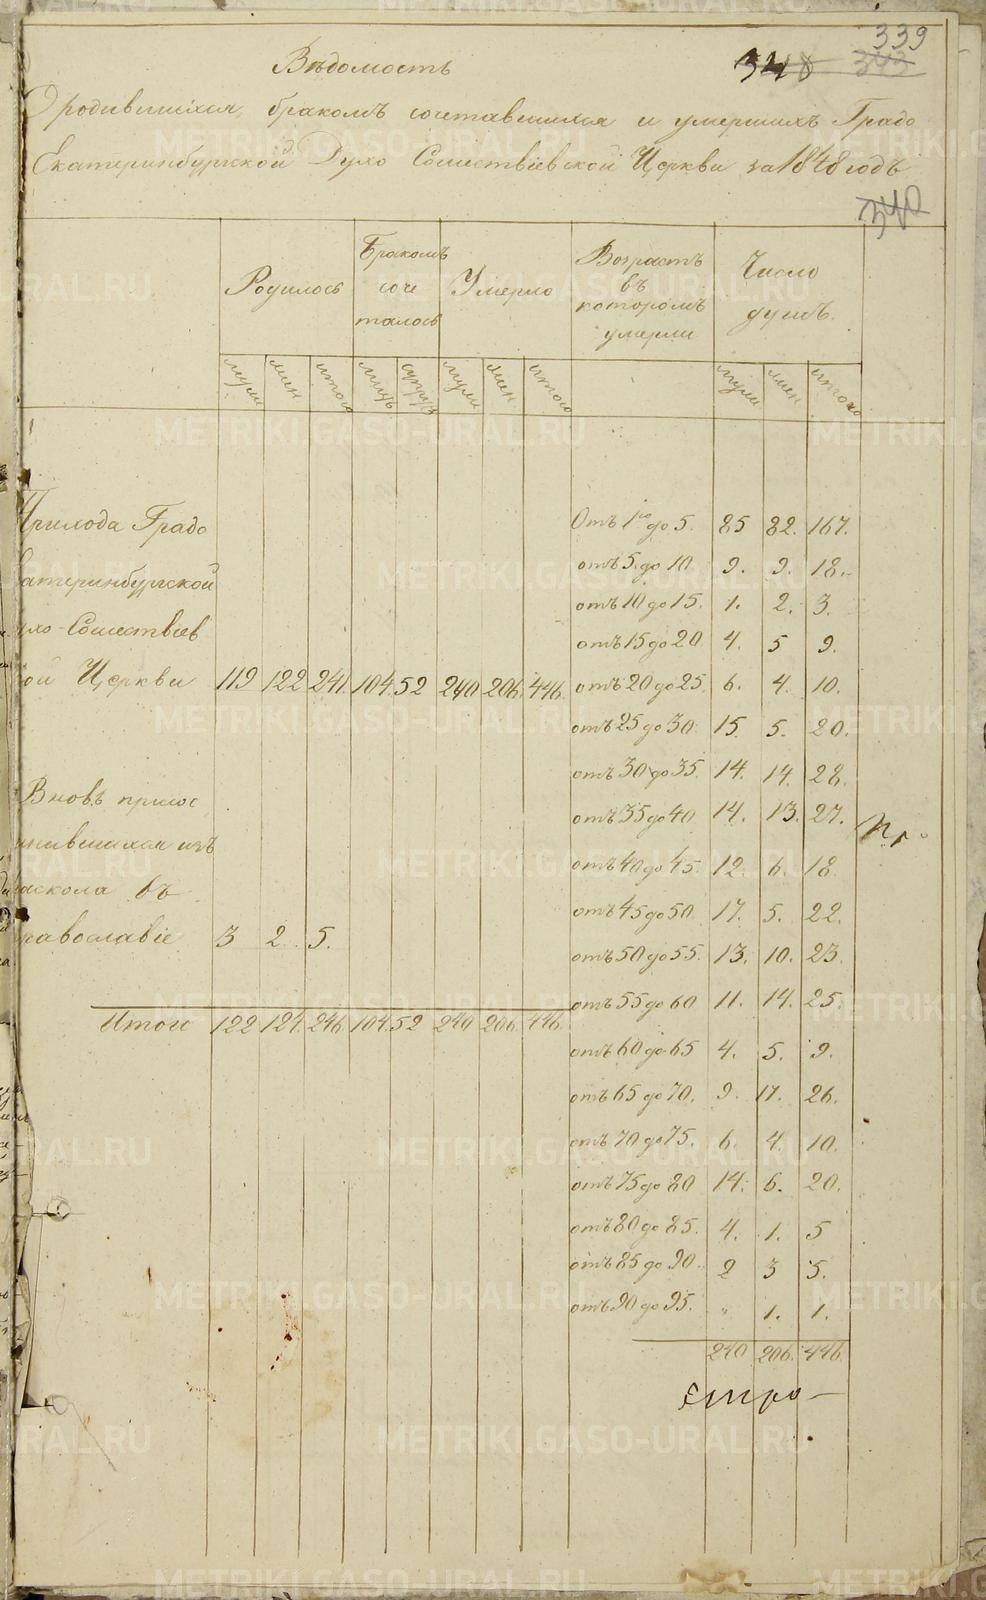 339
348 343
Вѣдомость
О родившихся, бракомъ сочетавшихся и умершихъ Градо
Екатеринбургской Духо Сошествіевской Церкви за 1848 годъ
340
Родилось
Бракомъ
соче
талось
Умерло
Возрастъ
въ
которомъ
умерли
Число
душъ.
муж жен итого муж супруж муж жен итого муж жен итого
Прихода Градо
катеринбургской
ухо-Сошествіев
ой Церкви 119 122 241. 104. 52 240 206. 446.
Вновь присое
инившихся изъ
раскола въ
равославіе 3 2. 5.
Итого 122 124. 246. 104. 52 240 206. 446.
Отъ 1го до 5. 85 82. 167.
отъ 5. до 10 9. 9. 18.
отъ 10 до 15. 1. 2. 3.
отъ 15 до 20 4. 5 9.
отъ 20 до 25. 6. 4. 10.
отъ 25 до 30. 15. 5. 20.
отъ 30 до 35. 14. 14. 28.
отъ 35 до 40 14. 13. 27.
отъ 40 до 45. 12. 6. 18.
отъ 45 до 50. 17. 5. 22.
отъ 50 до 55. 13. 10. 23.
отъ 55 до 60 11. 14. 25.
отъ 60 до 65 4. 5. 9.
отъ 65 до 70. 9. 17. 26.
отъ 70 до 75. 6. 4. 10.
отъ 75 до 80 14. 6. 20.
отъ 80 до 85. 4. 1. 5
отъ 85 до 90. 2 3 5.
отъ 90 до 95. " 1. 1.
240 206. 446.
METRIKI.GASO-URAL.RU